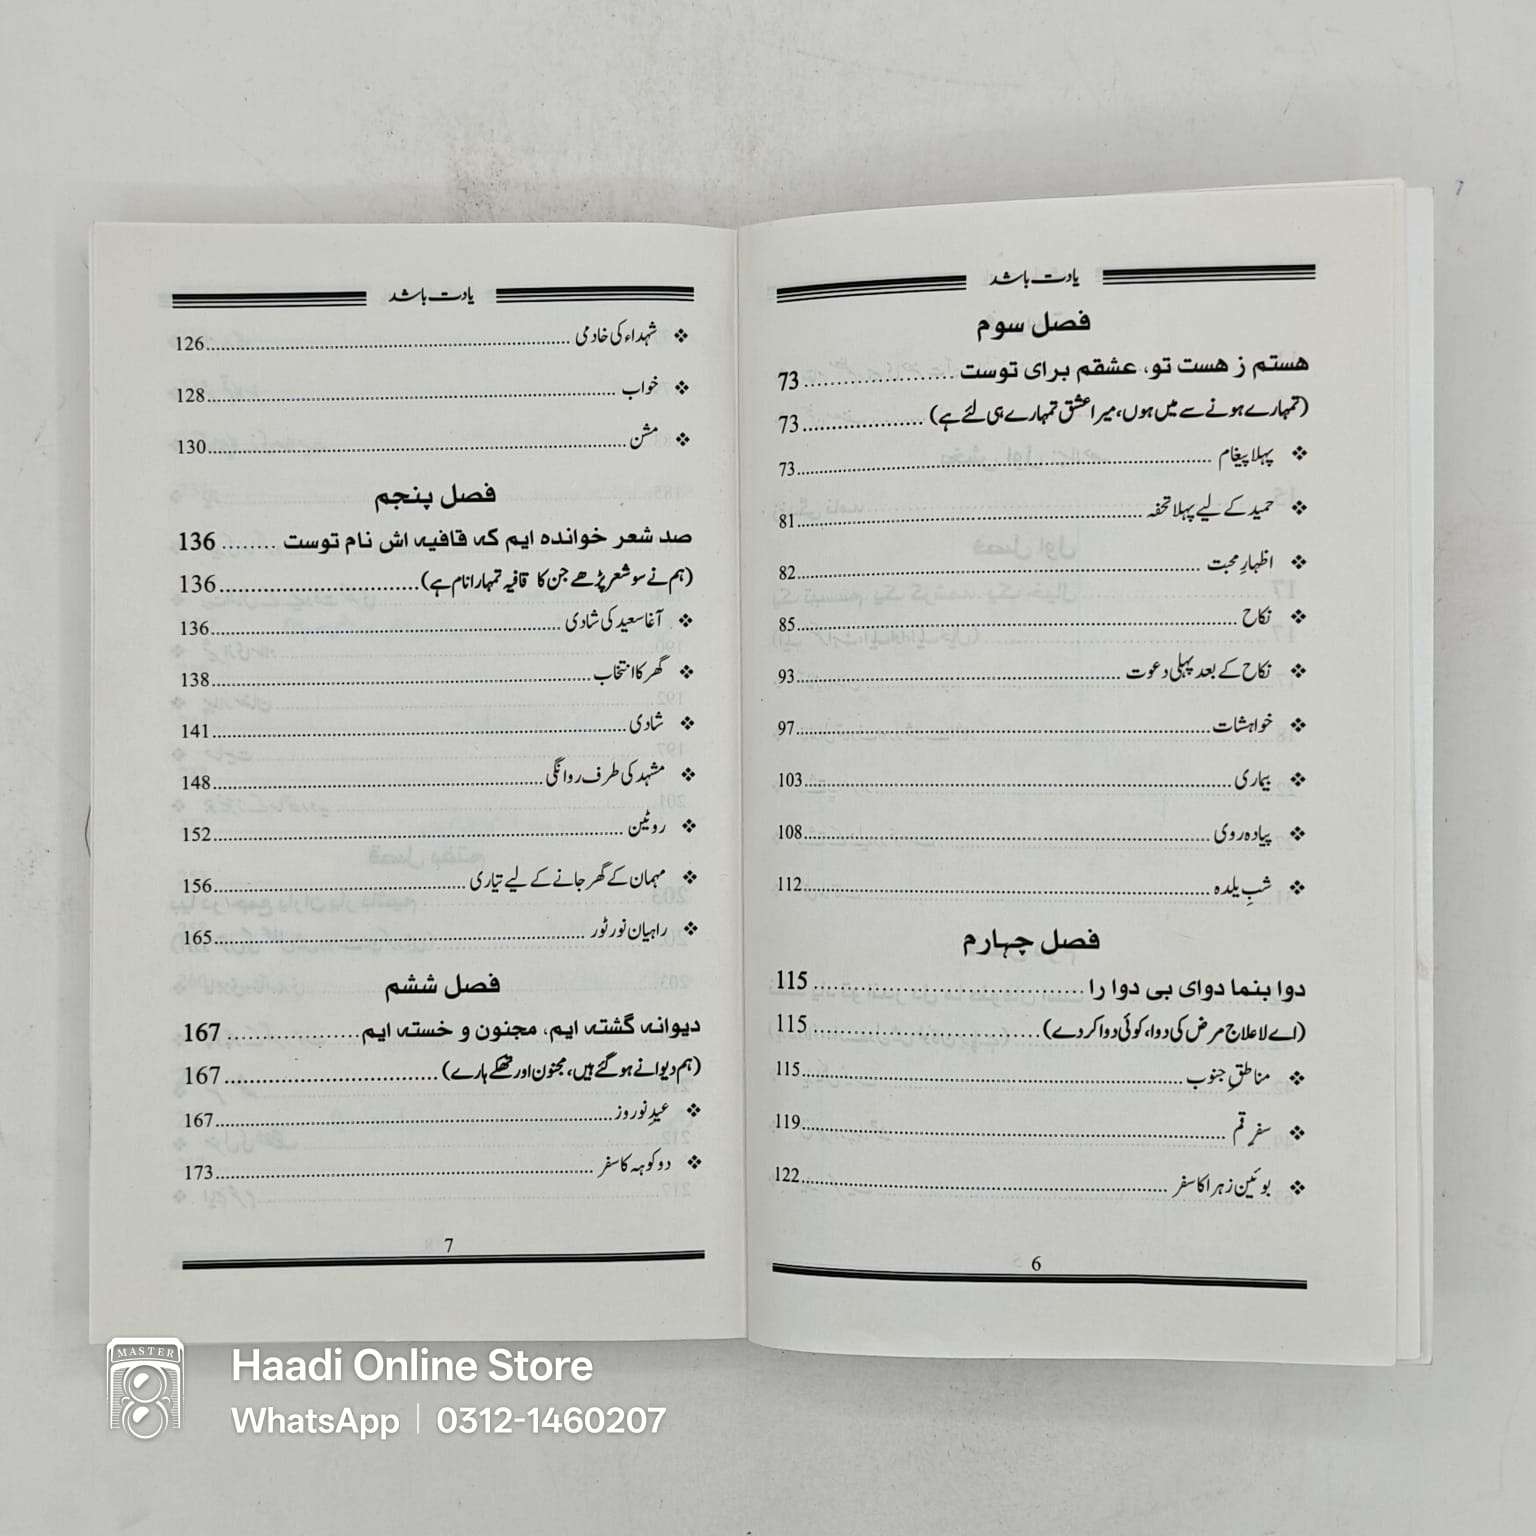 یادت باشد
فصل سوم
هستم ز هست تو، عشقم برای توست ............... 73
(تمہارے ہونے سے میں ہوں، میرا عشق تمہارے ہی لئے ہے) ............... 73
❖ پہلا پیغام ............... 73
❖ حمید کے لیے پہلا تحفہ ............... 81
❖ اظہارِ محبت ............... 82
❖ نکاح ............... 85
❖ نکاح کے بعد پہلی دعوت ............... 93
❖ خواہشات ............... 97
❖ بیماری ............... 103
❖ پیادہ روی ............... 108
❖ شبِ یلدہ ............... 112
فصل چہارم
دوا بنما دوای بی دوا را ............... 115
(اے لاعلاج مرض کی دوا، کوئی دوا کر دے) ............... 115
❖ مناطقِ جنوب ............... 115
❖ سفرِ قم ............... 119
❖ بوئین زہرا کا سفر ............... 122
6
یادت باشد
❖ شہداء کی خادمی ............... 126
❖ خواب ............... 128
❖ مشن ............... 130
فصل پنجم
صد شعر خوانده ایم که قافیه اش نام توست ........ 136
(ہم نے سو شعر پڑھے جن کا قافیہ تمہارا نام ہے) ............... 136
❖ آغا سعید کی شادی ............... 136
❖ گھر کا انتخاب ............... 138
❖ شادی ............... 141
❖ مشہد کی طرف روانگی ............... 148
❖ روٹین ............... 152
❖ مہمان کے گھر جانے کے لیے تیاری ............... 156
❖ راہیان نور ٹور ............... 165
فصل ششم
دیوانه گشته ایم، مجنون و خسته ایم ............... 167
(ہم دیوانے ہو گئے ہیں، مجنون اور تھکے ہارے) ............... 167
❖ عیدِ نوروز ............... 167
❖ دو کوہہ کا سفر ............... 173
7
MASTER
Haadi Online Store
WhatsApp | 0312-1460207